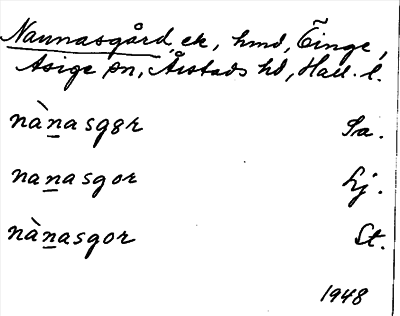 Nannasgård, ek, hmd, Tinge,
Asige sn, Årstads hd, Hall. l.
nànasgər Sa.
nanasgor Lj.
nànasgor St.
1948